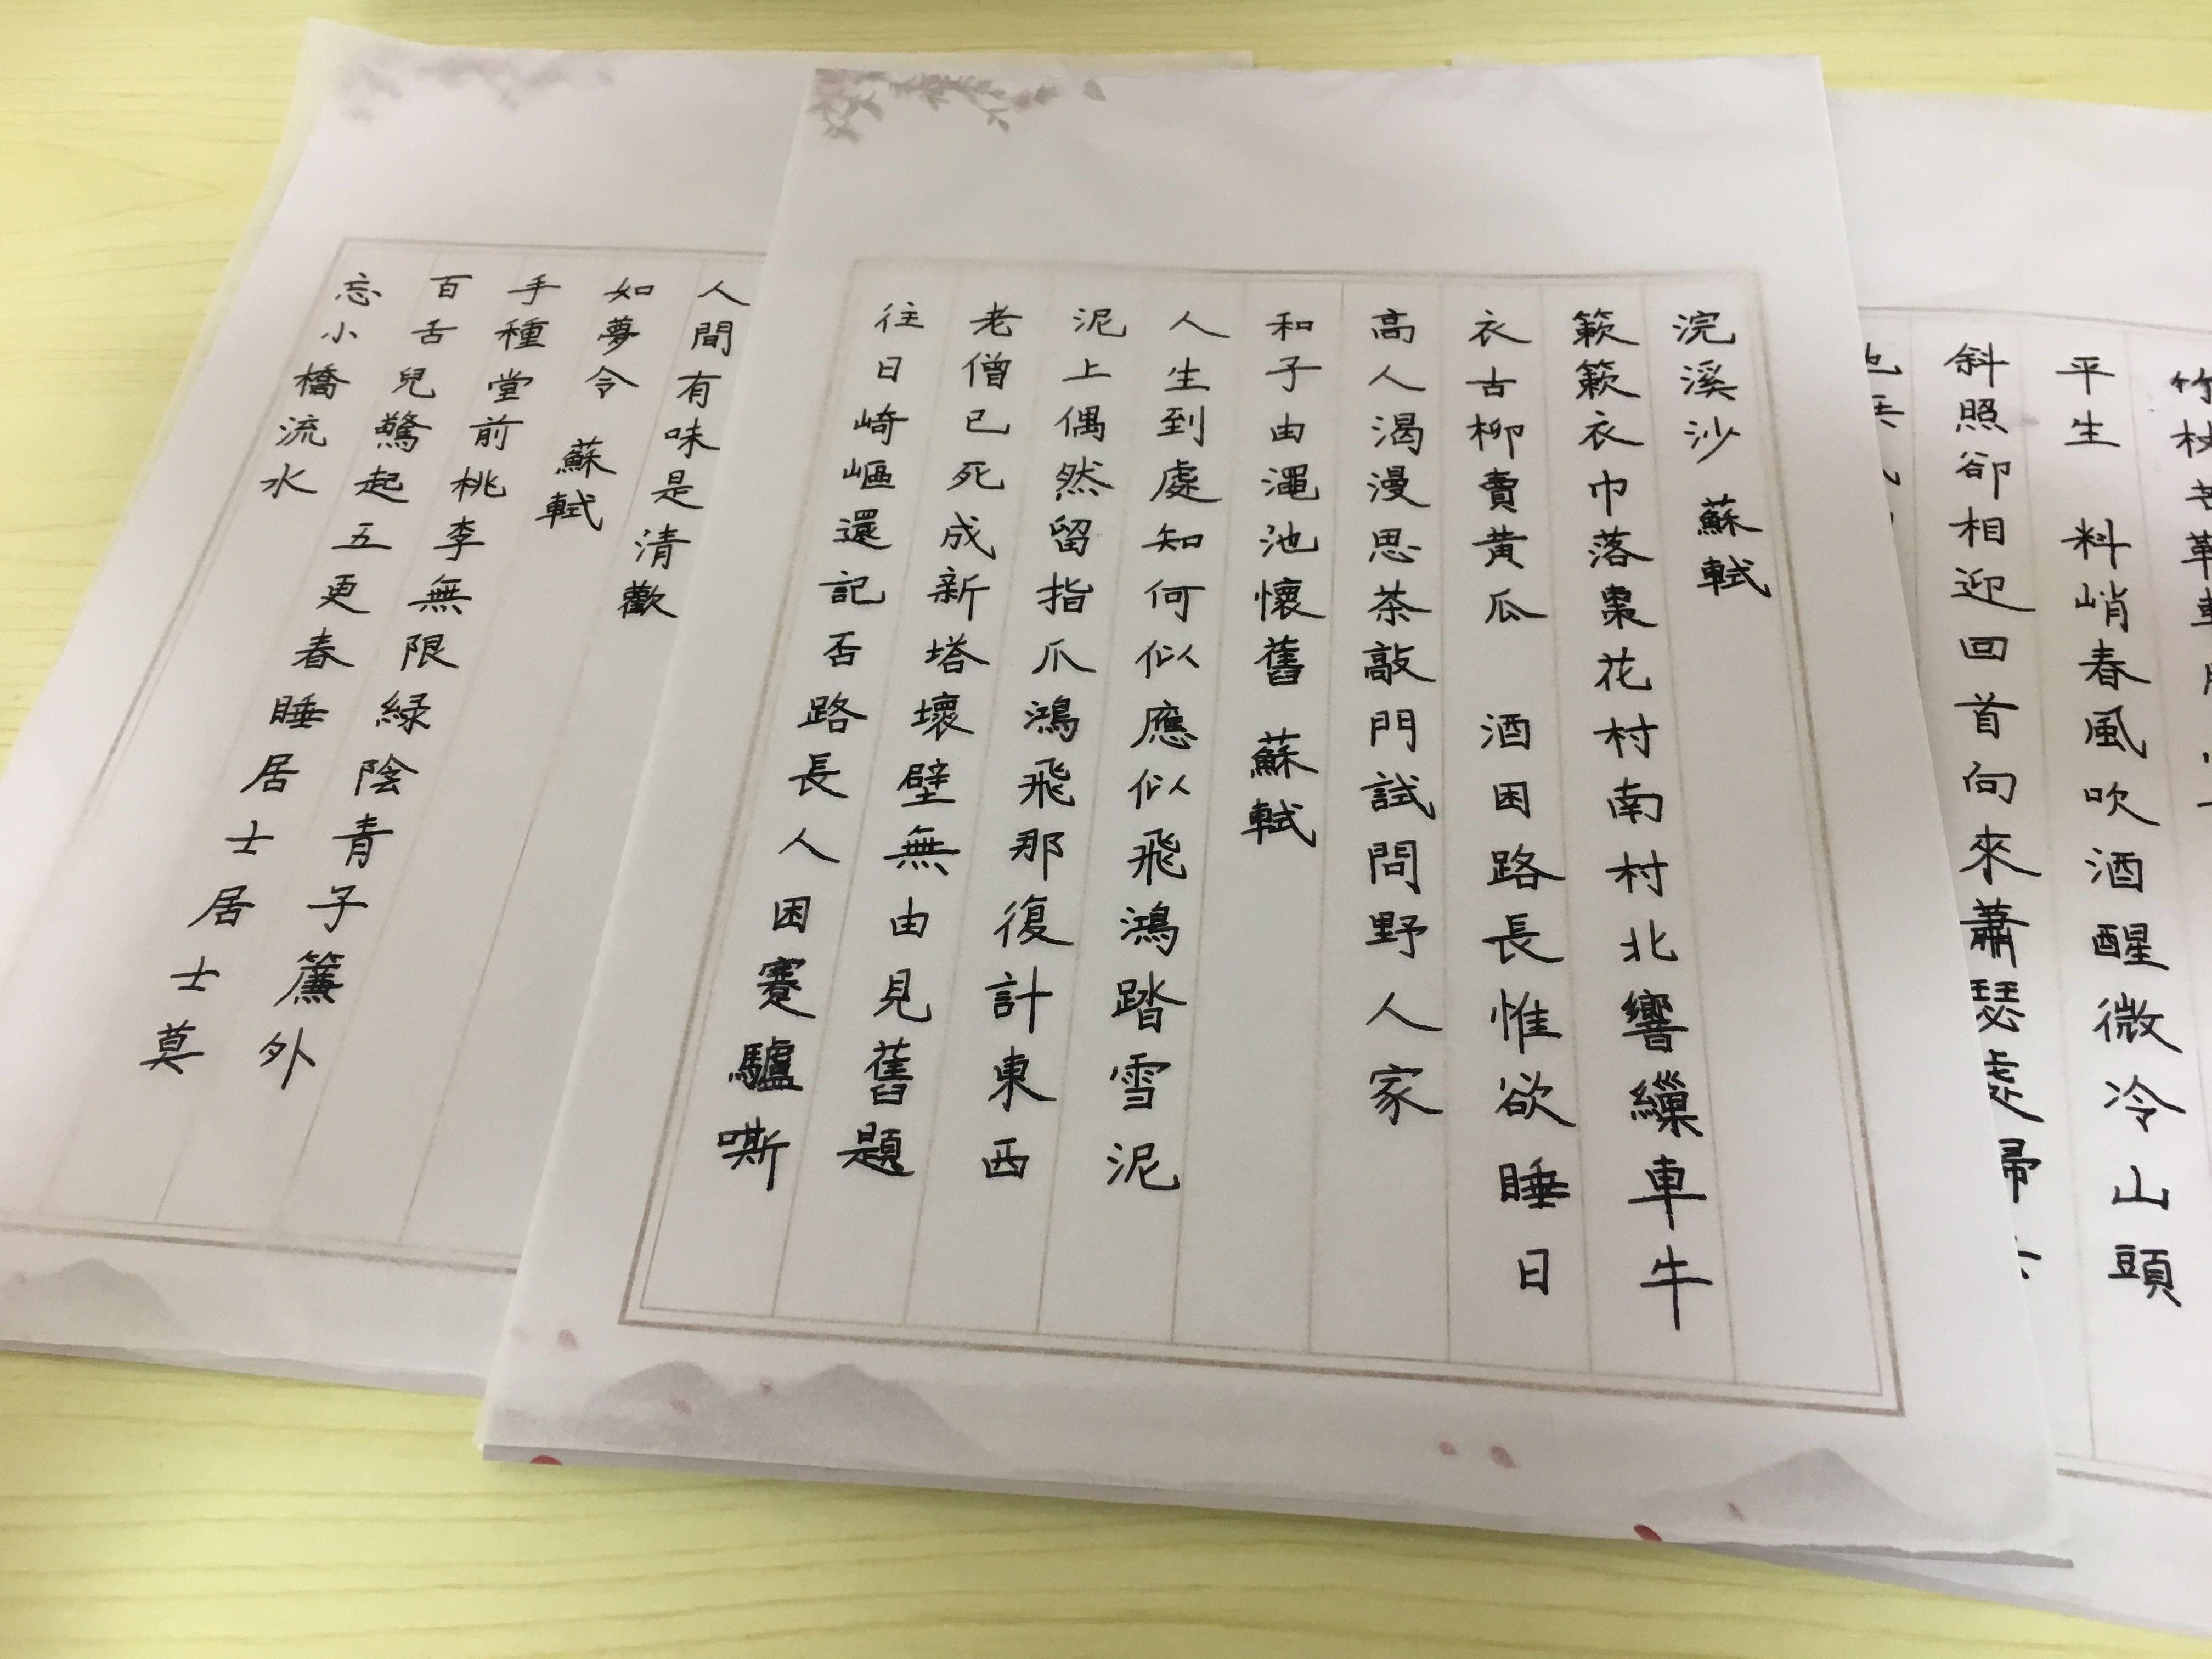 平生 料峭春風吹酒醒微冷山頭
斜照卻相迎回首向來蕭瑟處歸
浣溪沙 蘇軾
簌簌衣巾落棗花村南村北響繅車牛
衣古柳賣黃瓜 酒困路長惟欲睡日
高人渴漫思茶敲門試問野人家
和子由澠池懷舊 蘇軾
人生到處知何似應似飛鴻踏雪泥
泥上偶然留指爪鴻飛那復計東西
老僧已死成新塔壞壁無由見舊題
往日崎嶇還記否路長人困蹇驢嘶
人間有味是清歡
如夢令 蘇軾
手種堂前桃李無限綠陰青子簾外
百舌兒驚起五更春睡居士居士莫
忘小橋流水